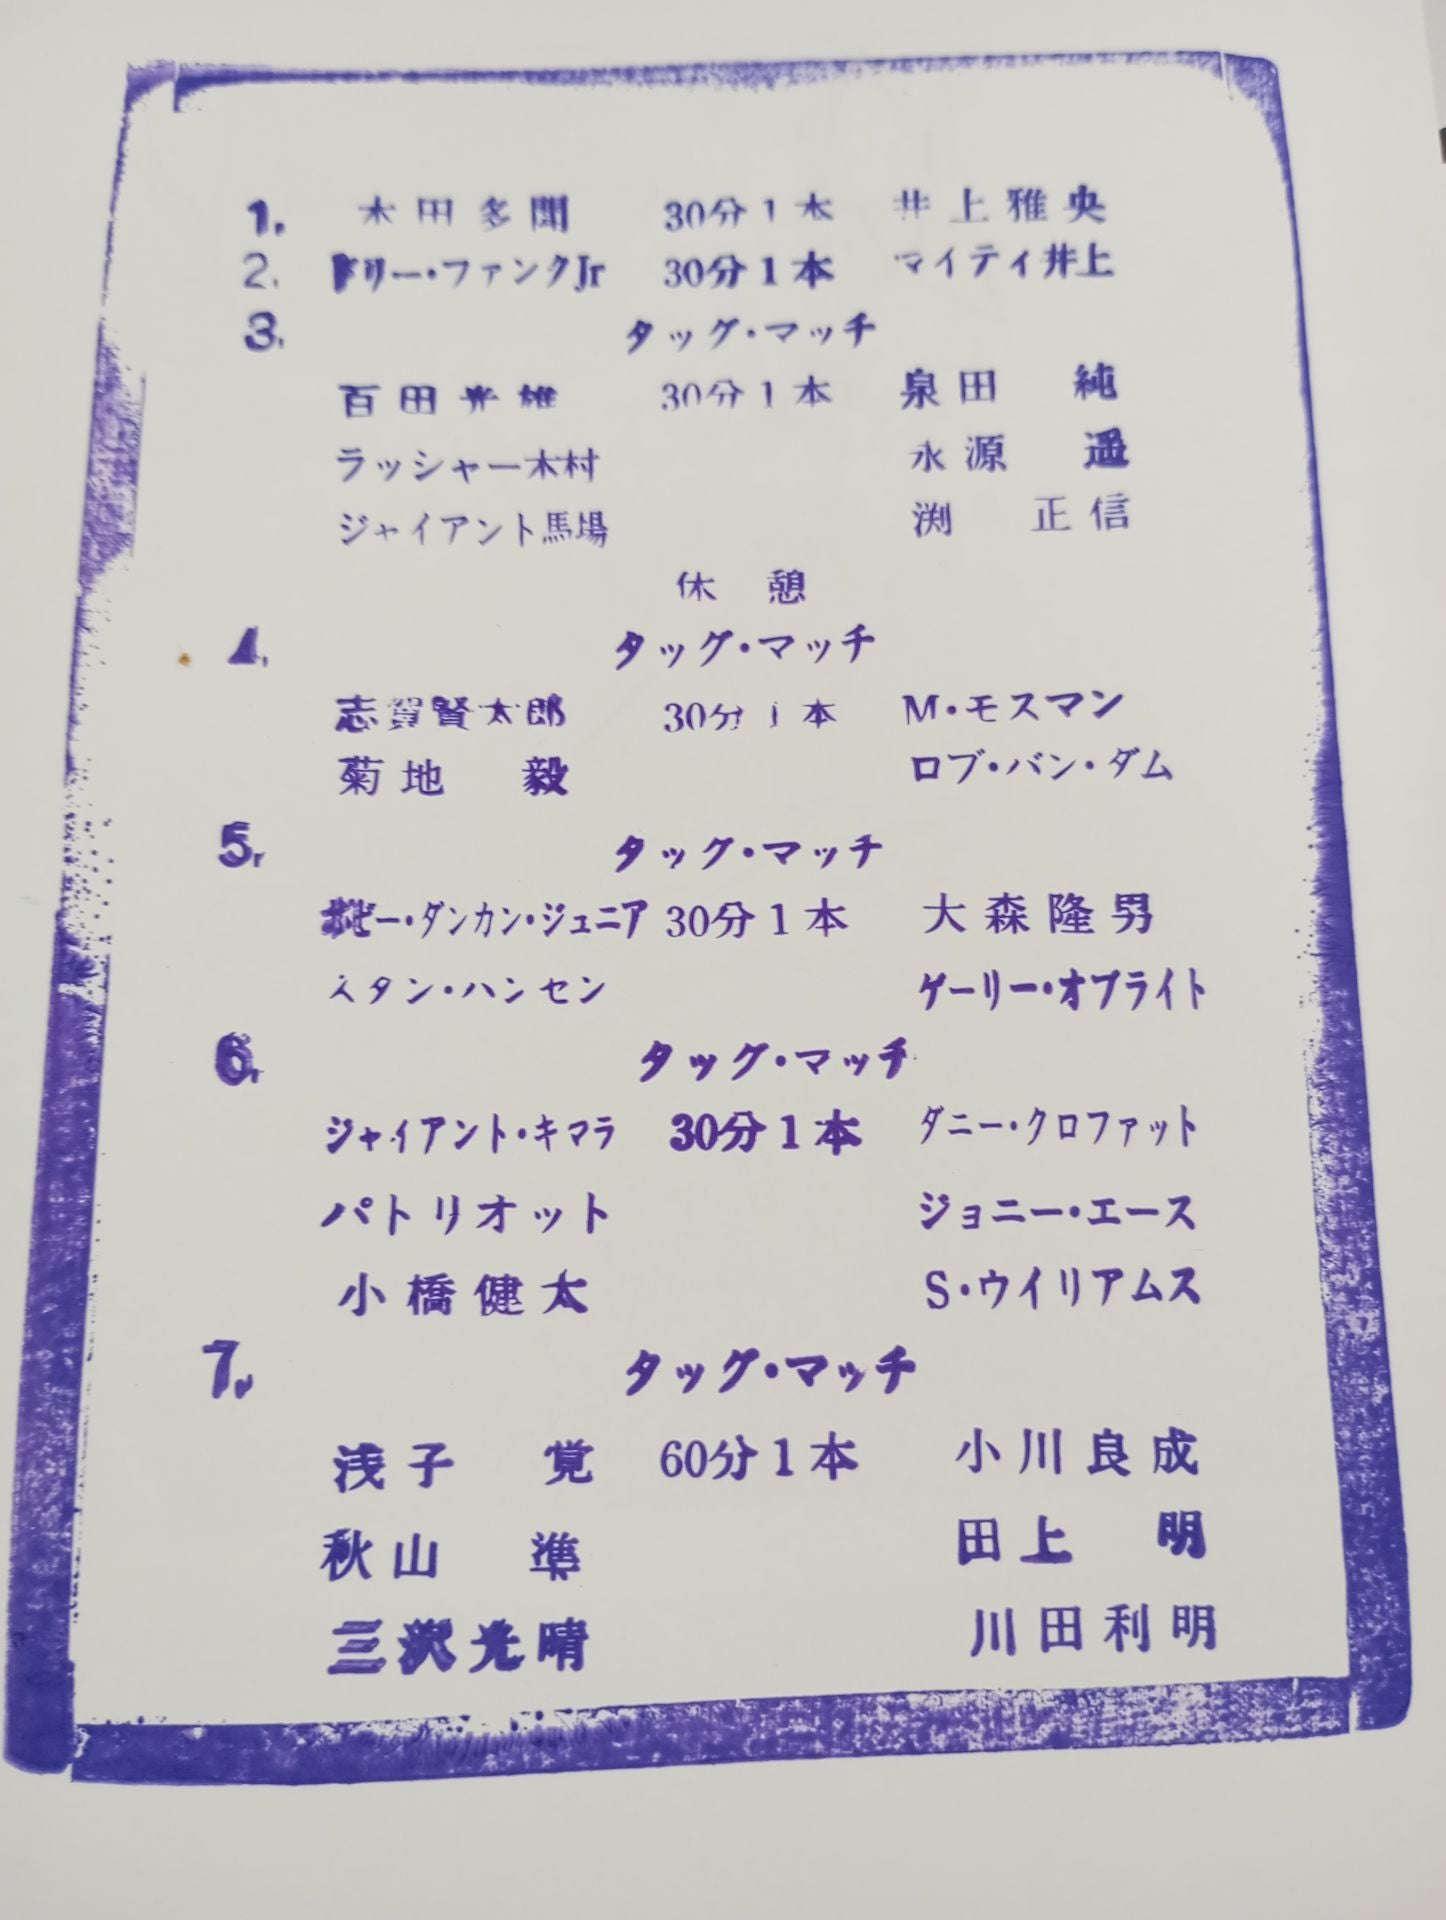 1. 本田多聞 30分1本 井上雅央
2. ドリー・ファンクJr 30分1本 マイティ井上
3. タッグ・マッチ
百田光雄 30分1本 泉田 純
ラッシャー木村 永源 遥
ジャイアント馬場 渕 正信
休 憩
4. タッグ・マッチ
志賀賢太郎 30分1本 M・モスマン
菊地 毅 ロブ・バン・ダム
5. タッグ・マッチ
ボビー・ダンカン・ジュニア 30分1本 大森隆男
スタン・ハンセン ゲーリー・オブライト
6. タッグ・マッチ
ジャイアント・キマラ 30分1本 ダニー・クロファット
パトリオット ジョニー・エース
小橋健太 S・ウイリアムス
7. タッグ・マッチ
浅子 覚 60分1本 小川良成
秋山 準 田上 明
三沢光晴 川田利明